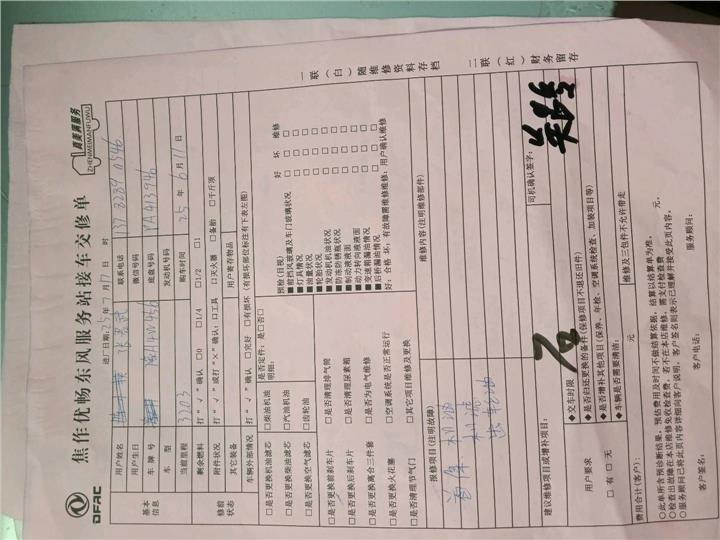 DFAC
焦作优畅东风服务站接车交修单
真美满服务
ZHENMEIMANFUWU
进厂日期:25年7月17日 时
基本信息
用户姓名
联系电话 137 8289 0546
用户生日
微信号码
车牌号
底盘号码 YA413946
车型
发动机号码
当前里程 3203
购车时间 25年6月11日
修前状态
剩余燃料 打“√”确认 □0 □1/4 □1/2 □1
附件状况 打“√”或打“×”确认:□工具 □灭火器 □备胎 □千斤顶
其它装备
用户寄存物品
车辆外部情况 打“√”确认 □完好 □有损坏(有损坏部位标注有下表左图)
□是否更换机油滤芯 □柴油机油
□是否更换柴油滤芯 □汽油机油
□是否更换空气滤芯 □齿轮油
□是否更换前刹车片 □是否清理排气筒
□是否更换后刹车片 □是否清理尿素箱
□是否更换离合三件套 □是否为电气维修
□是否更换火花塞 □空调系统是否正常运行
□是否清理节气门 □其它项目维修及更换
是否定件:是□否□
明细:
预检(目视) 好 坏 维修
■前挡风玻璃及车门玻璃状况 □ □ □
■灯具情况 □ □ □
■油量状况 □ □ □
■轮胎状况 □ □ □
■发动机机油状况 □ □ □
■防冻防锈瓶状况 □ □ □
■制动液液面 □ □ □
■动力转向液液面 □ □ □
■变速箱漏油情况 □ □ □
■后桥漏油情况 □ □ □
好:合格 坏:有故障需维修维修:用户确认维修
报修项目(注明故障)
维修内容(注明维修部件)
首保
机油
机滤
建议维修项目或增补项目:
司机确认签字:
用户要求
□有 □无
◆交车时限
◆是否归还更换的备件(保修项目不退还旧件)
◆是否增补其他项目(保养、年检、空调系统检查、加装项目等)
◆车辆是否需要清洁:
维修及三包件不允许带走
费用合计(客户): 元 元。
○此单所含预诊断结果,预估费用及时间不做结算依据,结算以结算单为准。
○检出故障在本店维修免收检查费,若不在本店维修,需支付检查费
○服务顾问已将此页内容详细向客户说明,客户签名则表示已理解并接受此页内容。
客户签名:
客户电话:
服务顾问:
一联(白)随维修资料存档
二联(红)财务留存